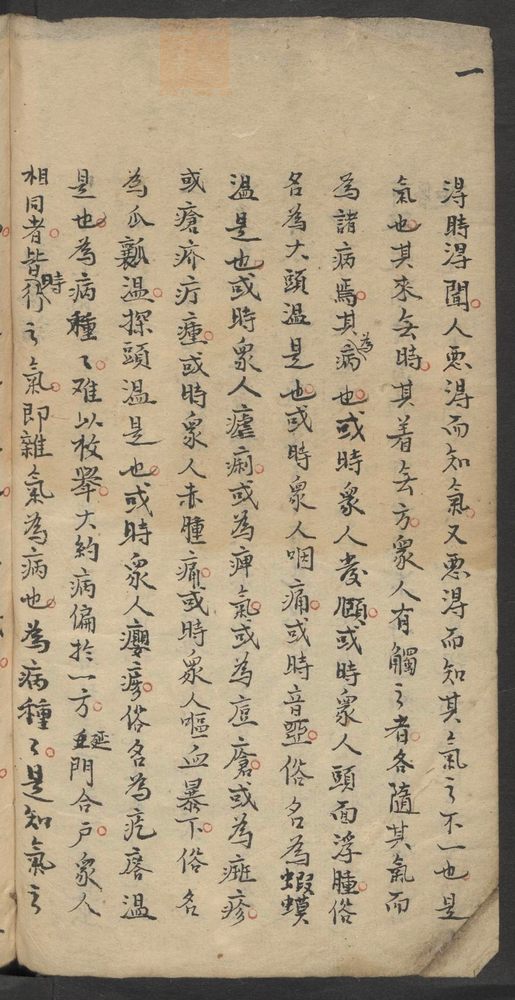 一
得時得聞人惡得而知氣又惡得而知其氣之不一也是
氣也其來無時其着無方衆人有觸之者各隨其氣而
為諸病焉其為病也或時衆人發頤或時衆人頭面浮腫俗
名為大頭温是也或時衆人咽痛或時音啞俗名為蝦蟆
温是也或時衆人瘧痢或為痺氣或為痘瘡或為斑疹
或瘡疥疔瘇或時衆人赤腫痛或時衆人嘔血暴下俗名
為瓜瓤温探頭温是也或時衆人癭痎俗名為疙瘩温
是也為病種〻难以枚舉大約病偏於一方延門合户衆人
相同者皆時行之氣即雜氣為病也為病種〻是知氣之